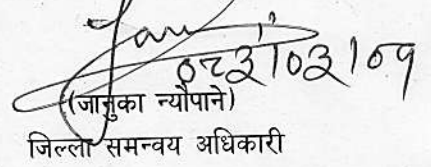 ०८२।०३।०१
(जानुका न्यौपाने)
जिल्ला समन्वय अधिकारी